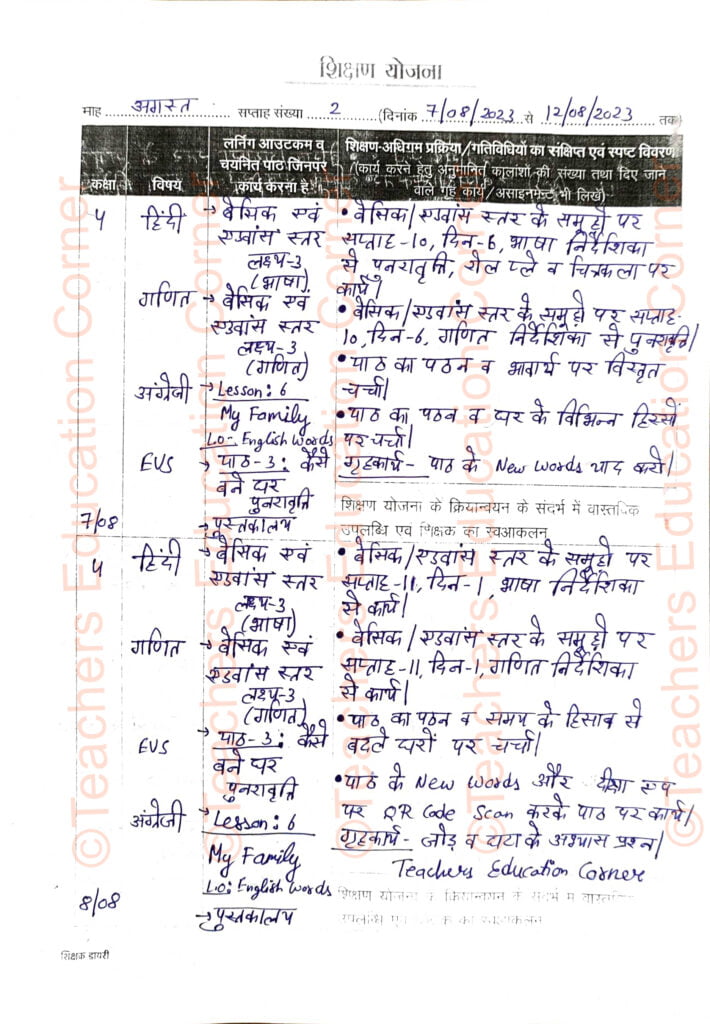 शिक्षण योजना
माह अगस्त सप्ताह संख्या 2 (दिनांक 7/08/2023 से 12/08/2023 तक)
कक्षा
विषय
लर्निंग आउटकम व
चयनित पाठ जिनपर
कार्य करना है
शिक्षण-अधिगम प्रक्रिया/गतिविधियों का संक्षिप्त एवं स्पष्ट विवरण
(कार्य करने हेतु अनुमानित कालांशों की संख्या तथा दिए जाने
वाले गृह कार्य/असाइनमेंट भी लिखें)
4
हिंदी
→ बेसिक एवं
एडवांस स्तर
लक्ष्य-3
(भाषा)
• बेसिक/एडवांस स्तर के समूहो पर
सप्ताह-10, दिन-6, भाषा निर्देशिका
से पुनरावृत्ति, रोल प्ले व चित्रकला पर
कार्य।
गणित
→ बेसिक एवं
एडवांस स्तर
लक्ष्य-3
(गणित)
• बेसिक/एडवांस स्तर के समूहो पर सप्ताह-
10, दिन-6, गणित निर्देशिका से पुनरावृत्ति।
• पाठ का पठन व भावार्थ पर विस्तृत
चर्चा।
अंग्रेजी
→ Lesson: 6
My Family
L.O-. English Words
• पाठ का पठन व घर के विभिन्न हिस्सों
पर चर्चा।
EVS
→ पाठ-3: कैसे
बने घर
पुनरावृत्ति
→ पुस्तकालय
गृहकार्य- पाठ के New words याद करो।
7/08
शिक्षण योजना के क्रियान्वयन के संदर्भ में वास्तविक
उपलब्धि एवं शिक्षक का स्वआकलन
4
हिंदी
→ बेसिक एवं
एडवांस स्तर
लक्ष्य-3
(भाषा)
• बेसिक/एडवांस स्तर के समूहो पर
सप्ताह-11, दिन-1, भाषा निर्देशिका
से कार्य।
गणित
→ बेसिक एवं
एडवांस स्तर
लक्ष्य-3
(गणित)
• बेसिक/एडवांस स्तर के समूहो पर
सप्ताह-11, दिन-1, गणित निर्देशिका
से कार्य।
EVS
→ पाठ-3: कैसे
बने घर
पुनरावृत्ति
• पाठ का पठन व समय के हिसाब से
बदले घरों पर चर्चा।
अंग्रेजी
→ Lesson: 6
My Family
L.O: English Words
→ पुस्तकालय
• पाठ के New words और दीक्षा एप
पर QR Code Scan करके पाठ पर कार्य।
गृहकार्य- जोड़ व घटा के अभ्यास प्रश्न।
Teachers Education Corner
8/08
शिक्षण योजना के क्रियान्वयन के संदर्भ में वास्तविक
उपलब्धि एवं का स्वआकलन
शिक्षक डायरी
©Teachers Education Corner
©Teachers Education Corner
©Teachers Education Corner
©Teachers Education Corner